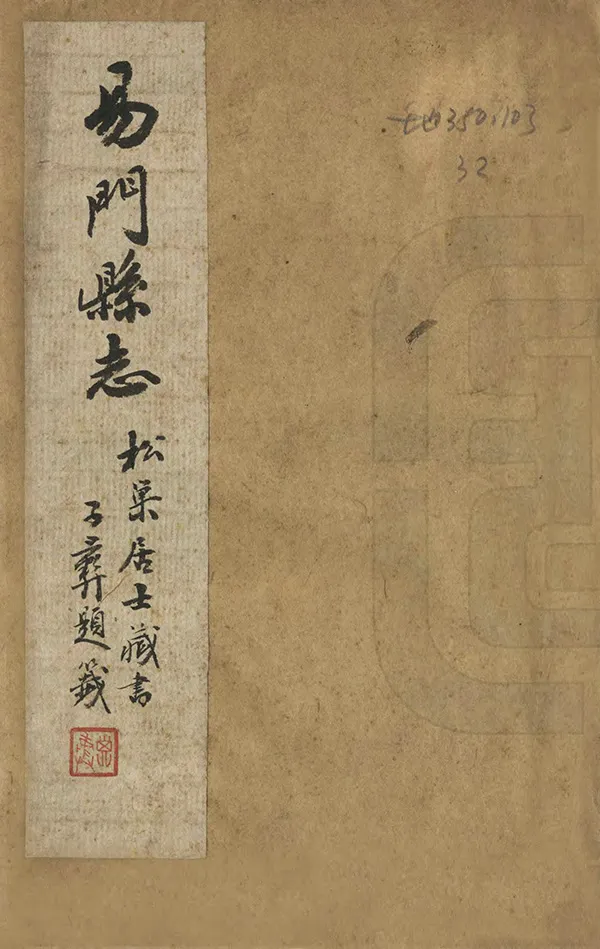 易門縣志
松巢居士藏書
子彝題籤
地350.103
32